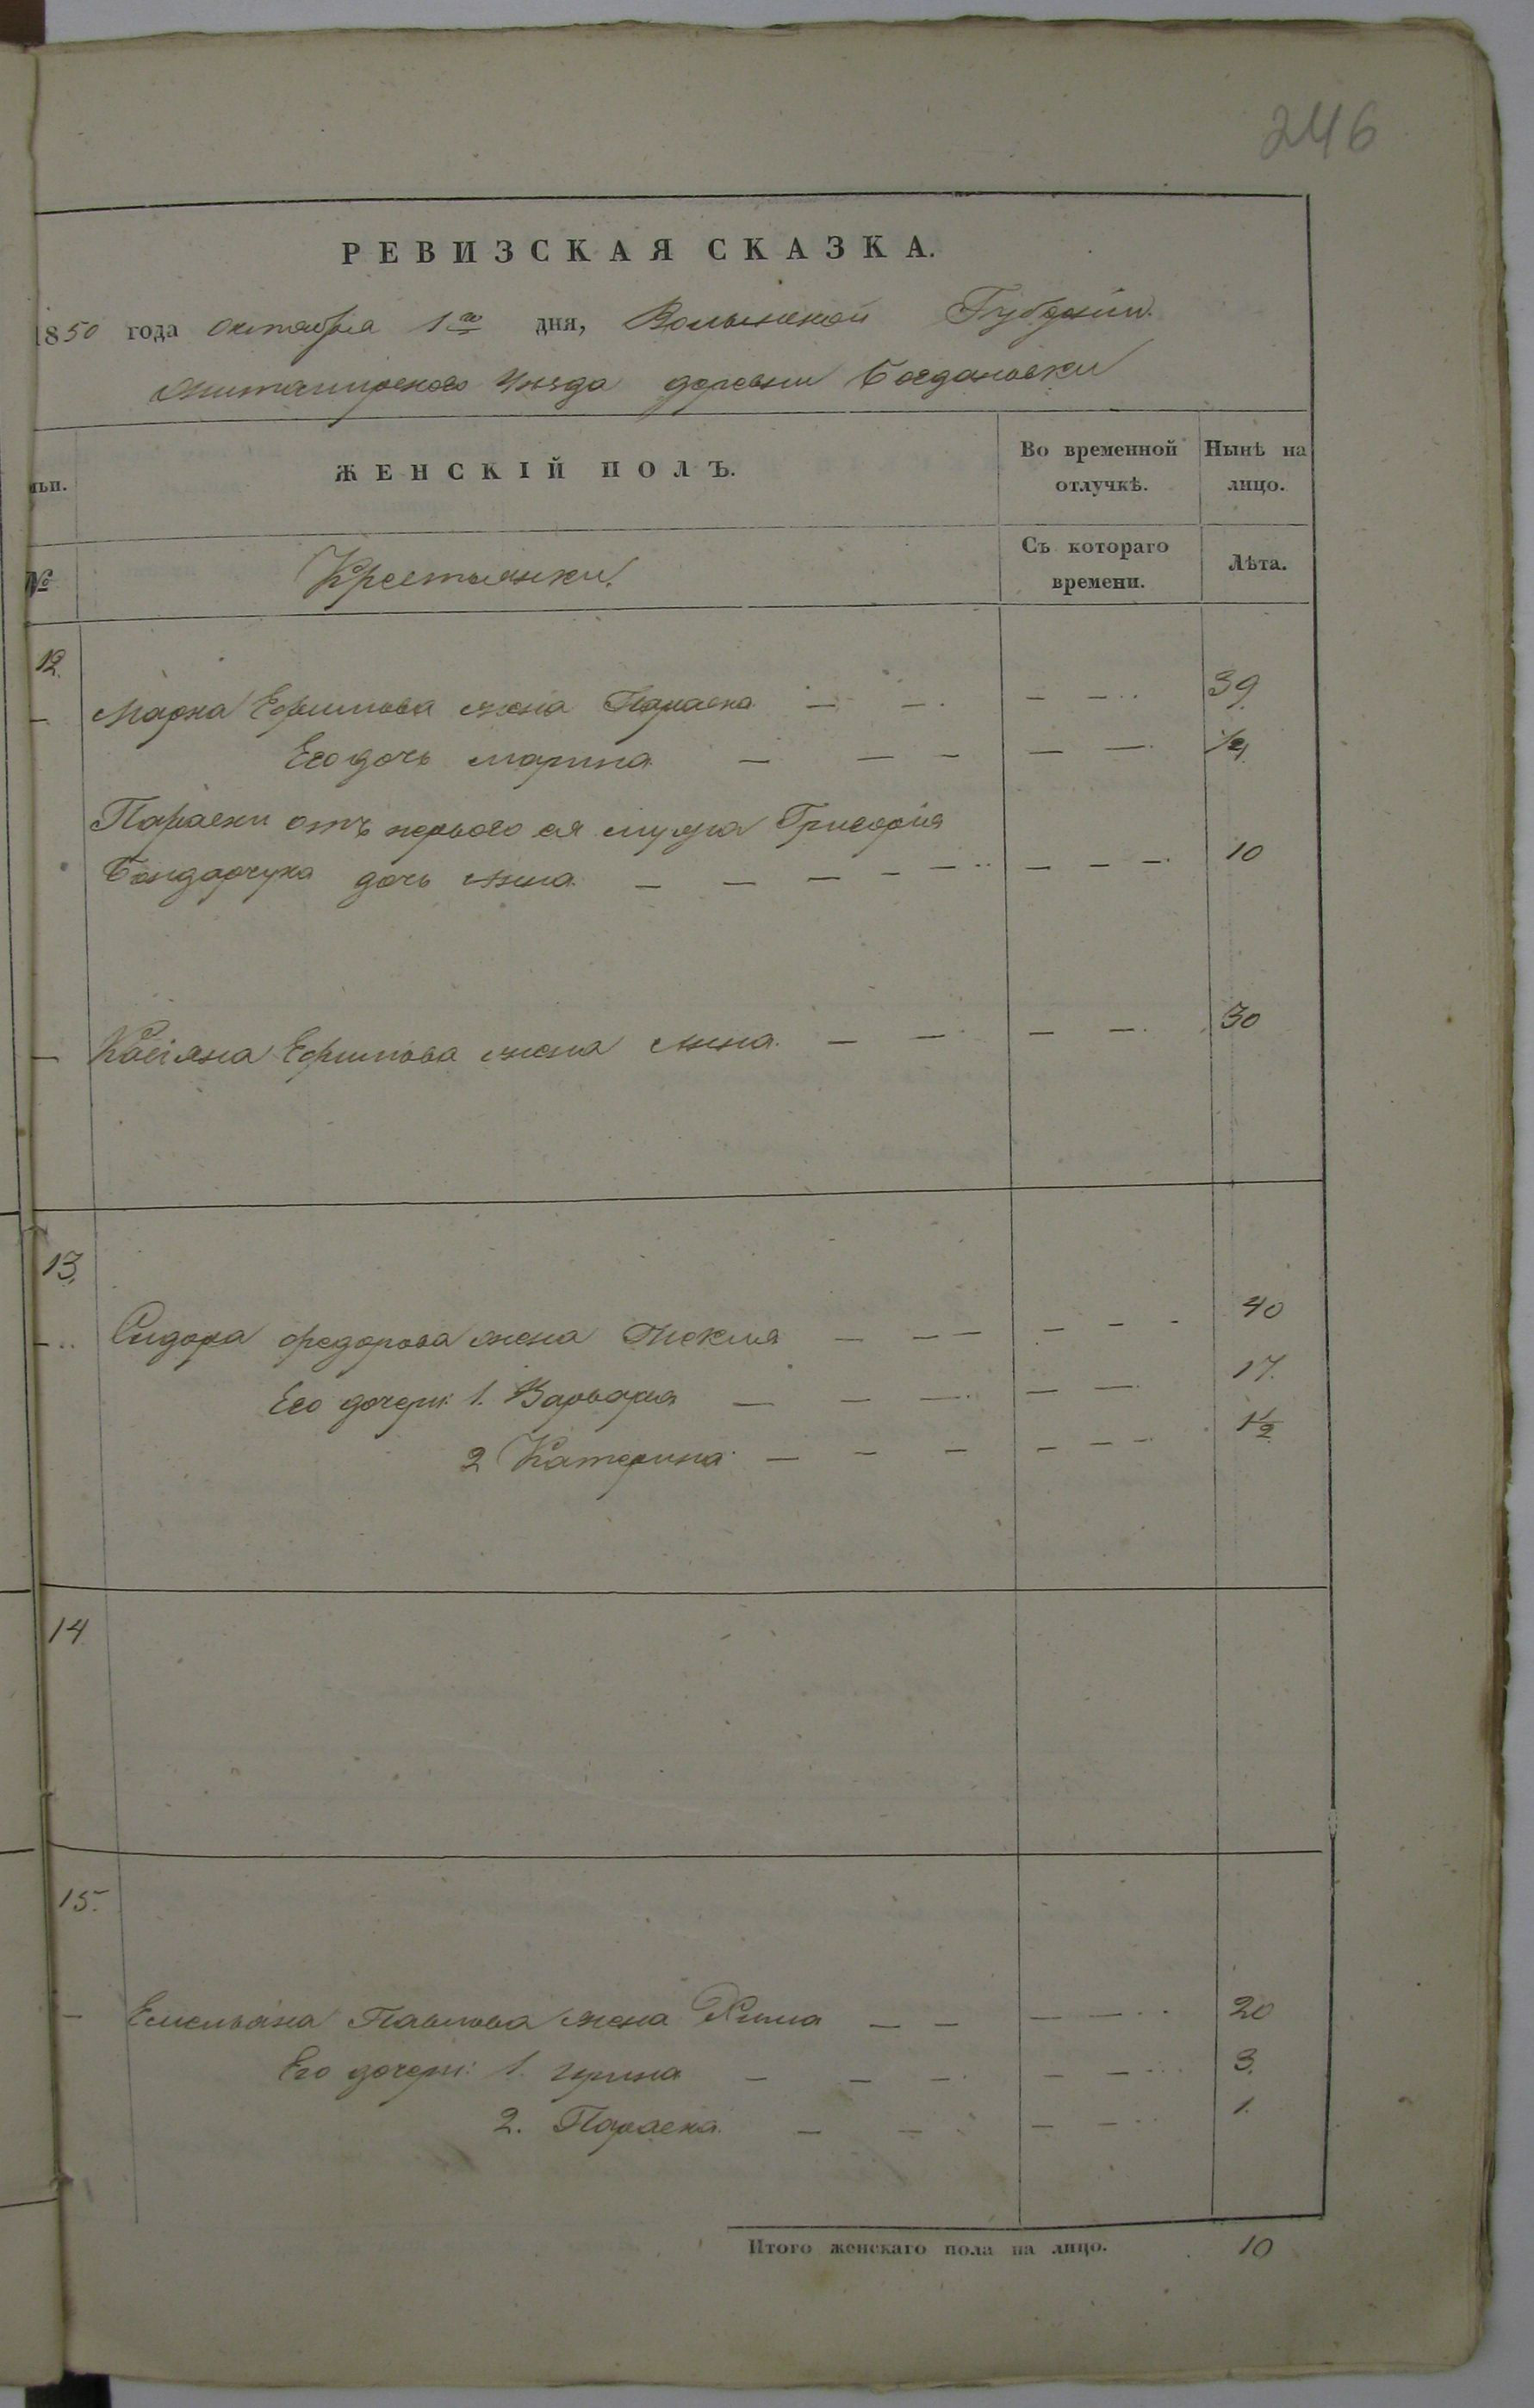 246
РЕВИЗСКАЯ СКАЗКА.
1850 года октября 1го дня, Волынской Губерніи
Житомирского Уезда деревни Богдановки
ЖЕНСКІЙ ПОЛЪ.
Во временной отлучкѣ.
Нынѣ на лицо.
№
Крестьянки.
Съ котораго времени.
Лѣта.
12.
— Марка Ефимова жена Параска — — . — — . . 39.
Его дочь Марина — — — — — . 1/2
Параски отъ первого ея мужа Григорія
Бондарчука дочь Анна. — — — — — . . — — — . 10
— Касіяна Ефимова жена Анна. — — . — — . 30
13.
— . . Сидора Федорова жена Текля — — — — — - 40
Его дочери: 1. Варвара — — — . — — . 17.
2 Катерина — — — — — — . 1 1/2
14
15.
— Емельяна Павлова жена Химя — — — — . . 20
Его дочери: 1. Ирина — — — . — — . . . 3.
2. Параска. — — . — — . . 1.
Итого женскаго пола на лицо. 10